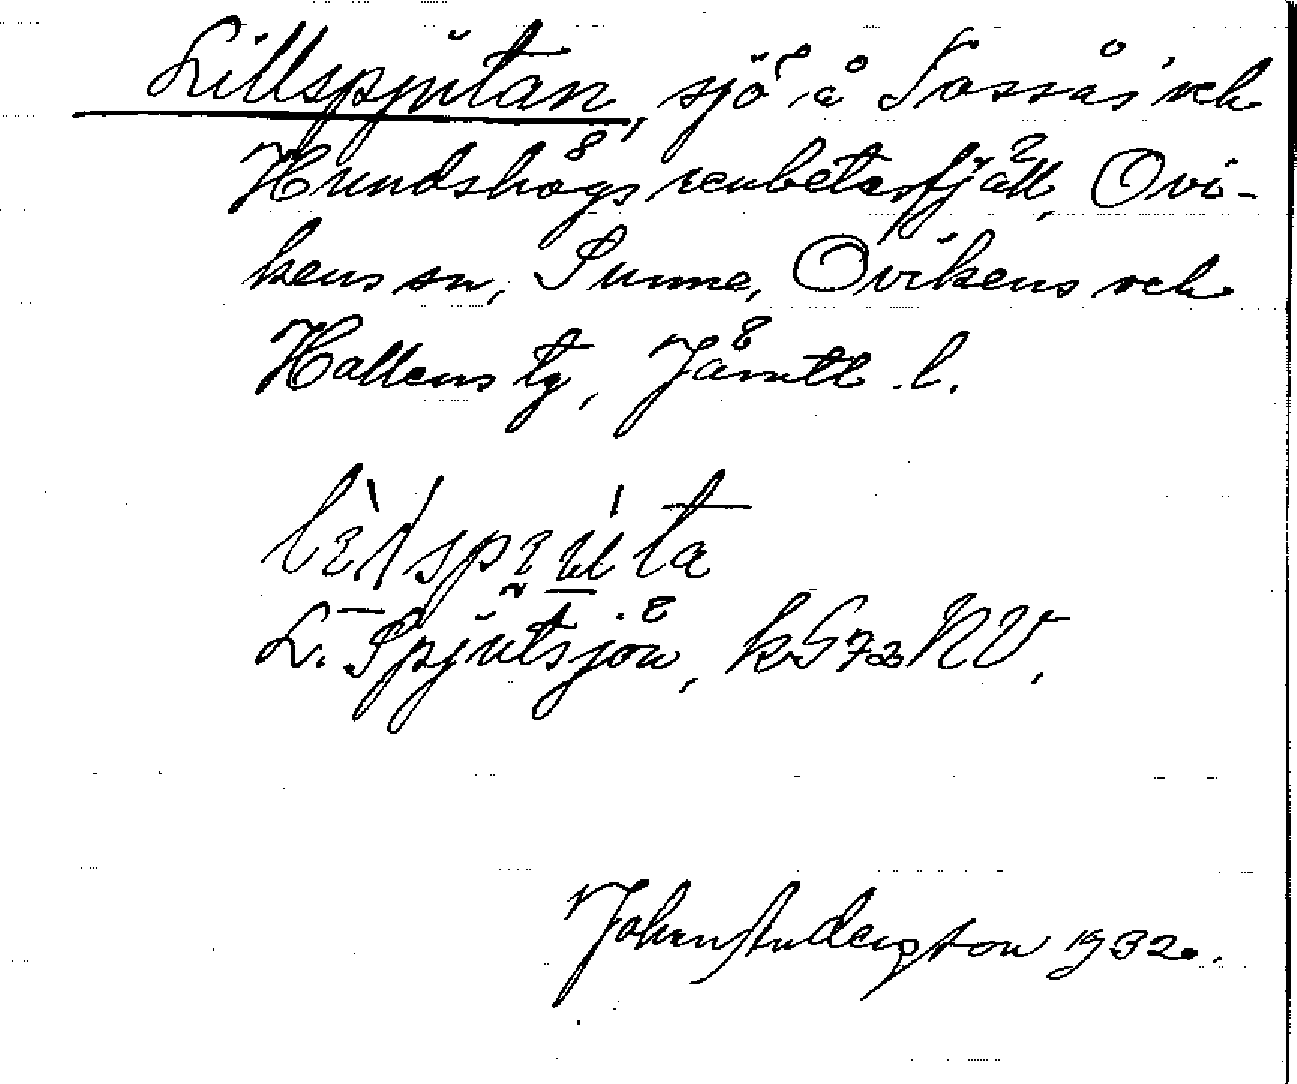 Lillspjutan, sjö å Tossåsˈ och
Hundshögs renbetesfjäll, Ovi-
kens sn, Sunne, Ovikens och
Hallens tg, Jämtl. l.
L. Spjutsjön, kG 72 NV.
John Andersson 1932.